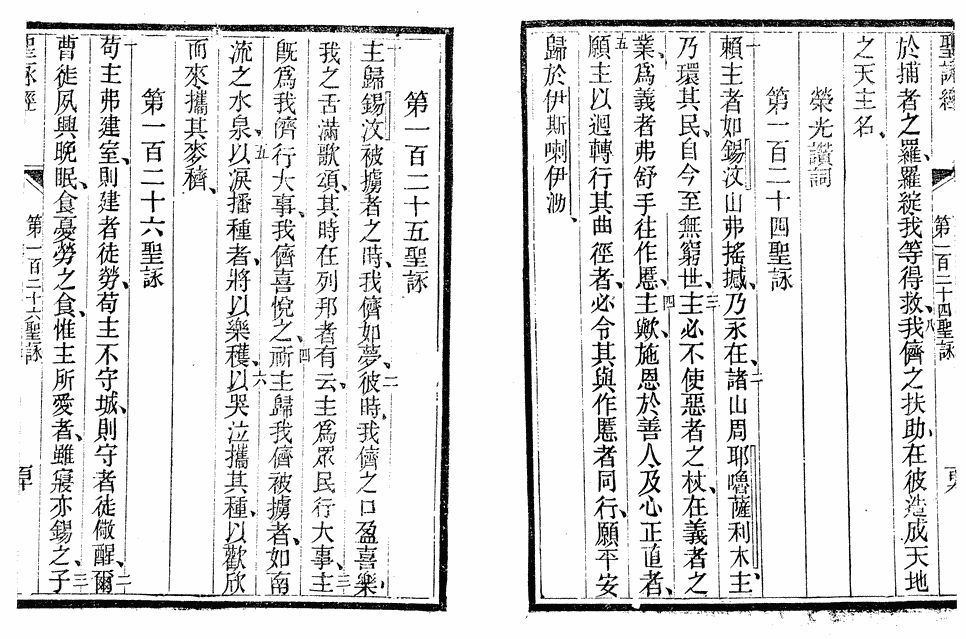 聖詠經
第一百二十四聖詠
於捕者之羅、羅綻我等得救、八我儕之扶助、在彼造成天地
之天主名、
榮光讚詞
第一百二十四聖詠
一賴主者如錫汶山弗搖撼、乃永在、二諸山周耶嚕薩利木、主
乃環其民、自今至無窮世、三主必不使惡者之杖、在義者之
業、爲義者弗舒手往作慝、四主歟、施恩於善人、及心正直者、
五願主以迴轉行其曲徑者、必令其與作慝者同行、願平安
歸於伊斯喇伊泐、
第一百二十五聖詠
一主歸錫汶被擄者之時、我儕如夢、二彼時、我儕之口盈喜樂、
我之舌滿歌頌、其時在列邦者有云、主爲眾民行大事、三主
旣爲我儕行大事、我儕喜悅之、四祈主歸我儕被擄者、如南
流之水泉、五以淚播種者、將以樂穫、六以哭泣攜其種、以歡欣
而來、攜其麥穧、
第一百二十六聖詠
一苟主弗建室、則建者徒勞、苟主不守城、則守者徒儆醒、二爾
曹徒夙興晚眠、食憂勞之食、惟主所愛者、雖寢亦錫之、三子
聖詠經
第一百二十六聖詠